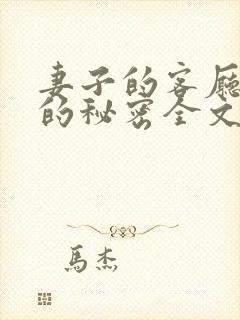 妻子的客厅
的秘密全文
馬杰